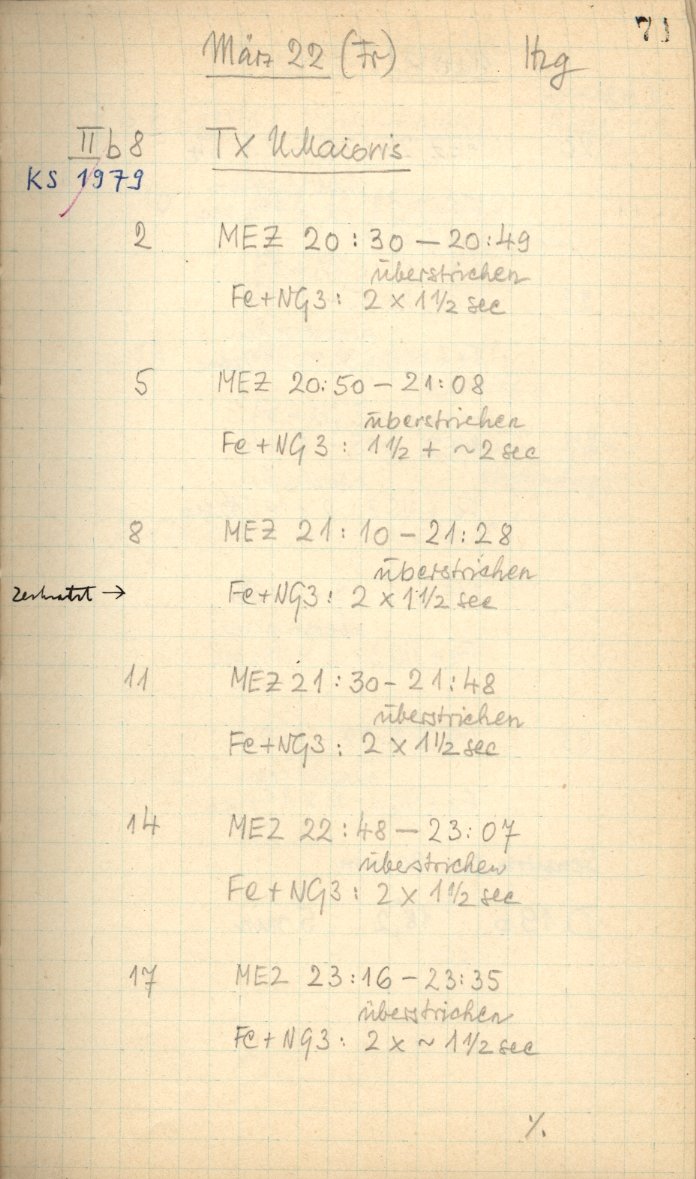 71
März 22 (Fr) Hzg
II b 8 TX UMaioris
KS 1979
2 MEZ 20:30 – 20:49
überstrichen
Fe+NG3: 2 x 1 1/2 sec
5 MEZ 20:50 – 21:08
überstrichen
Fe+NG3: 1 1/2 + ~2 sec
8 MEZ 21:10 – 21:28
überstrichen
zerkratzt → Fe+NG3: 2 x 1 1/2 sec
11 MEZ 21:30 – 21:48
überstrichen
Fe+NG3: 2 x 1 1/2 sec
14 MEZ 22:48 – 23:07
überstrichen
Fe+NG3: 2 x 1 1/2 sec
17 MEZ 23:16 – 23:35
überstrichen
Fe+NG3: 2 x ~ 1 1/2 sec
%.